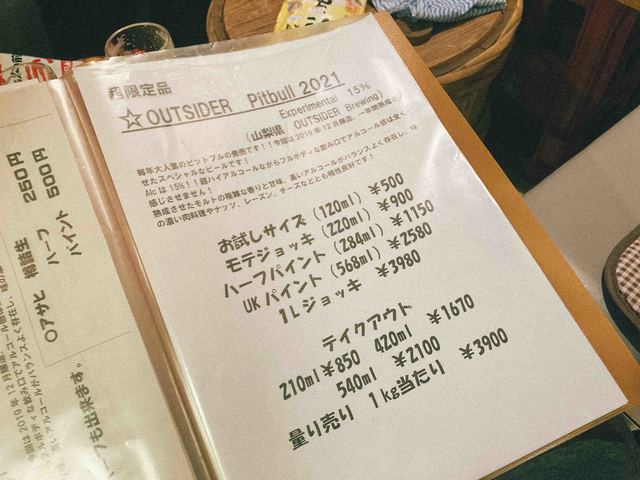 超限定品
☆OUTSIDER Pitbull 2021
Experimental 15%
(山梨県 OUTSIDER Brewing)
毎年大人気のピットブルの発売です!!今回は2019年12月醸造、一年間熟成さ
せたスペシャルなビールです!
Alcは15%!!超ハイアルコールながらフルボディな飲み口でアルコール感は全く
感じさせません!
熟成させたモルトの複雑な香りと甘味、高いアルコールがバランスよく存在し、味
の濃い肉料理やナッツ、レーズン、チーズなどとも相性良好です!
お試しサイズ(120ml) ¥500
モテジョッキ(220ml) ¥900
ハーフパイント(284ml) ¥1150
UKパイント(568ml) ¥2580
1Lジョッキ ¥3980
テイクアウト
210ml ¥850 420ml ¥1670
540ml ¥2100
量り売り 1kg当たり ¥3900
〇アサヒ 樽詰生
ハーフ 250円
パイント 500円
今回は2019年12月醸造
フルボディな飲み口でアルコール感
バランスよく存在し、
も出来ます。